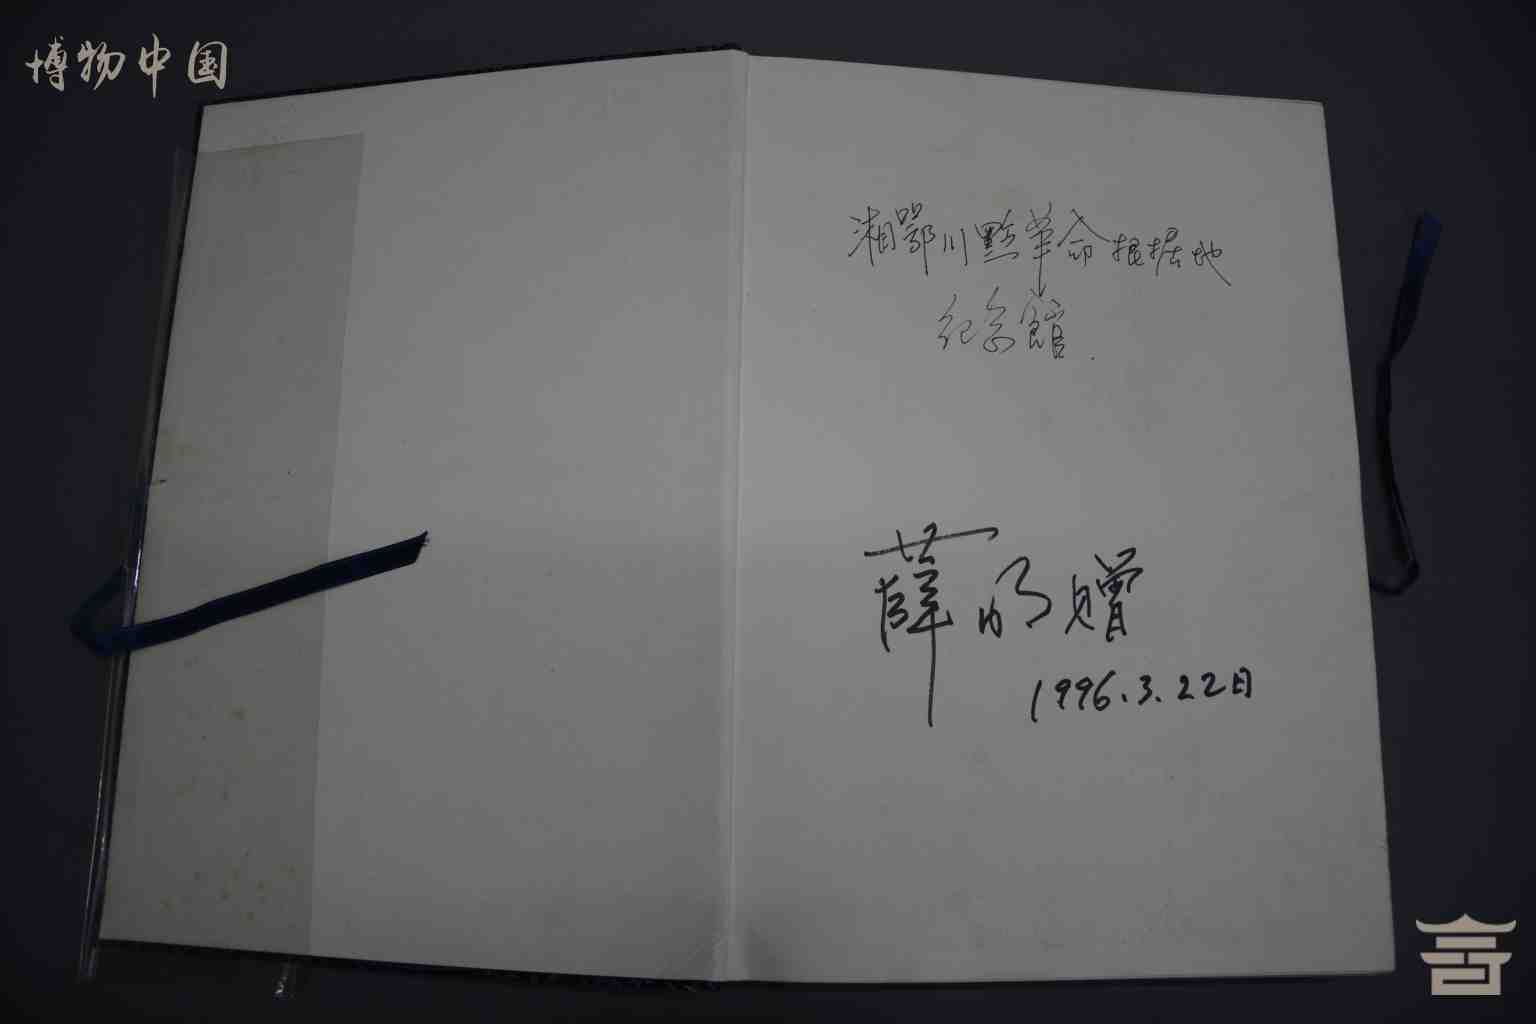 博物中国
湘鄂川黔革命根据地
纪念館.
薛明贈
1996.3.22日